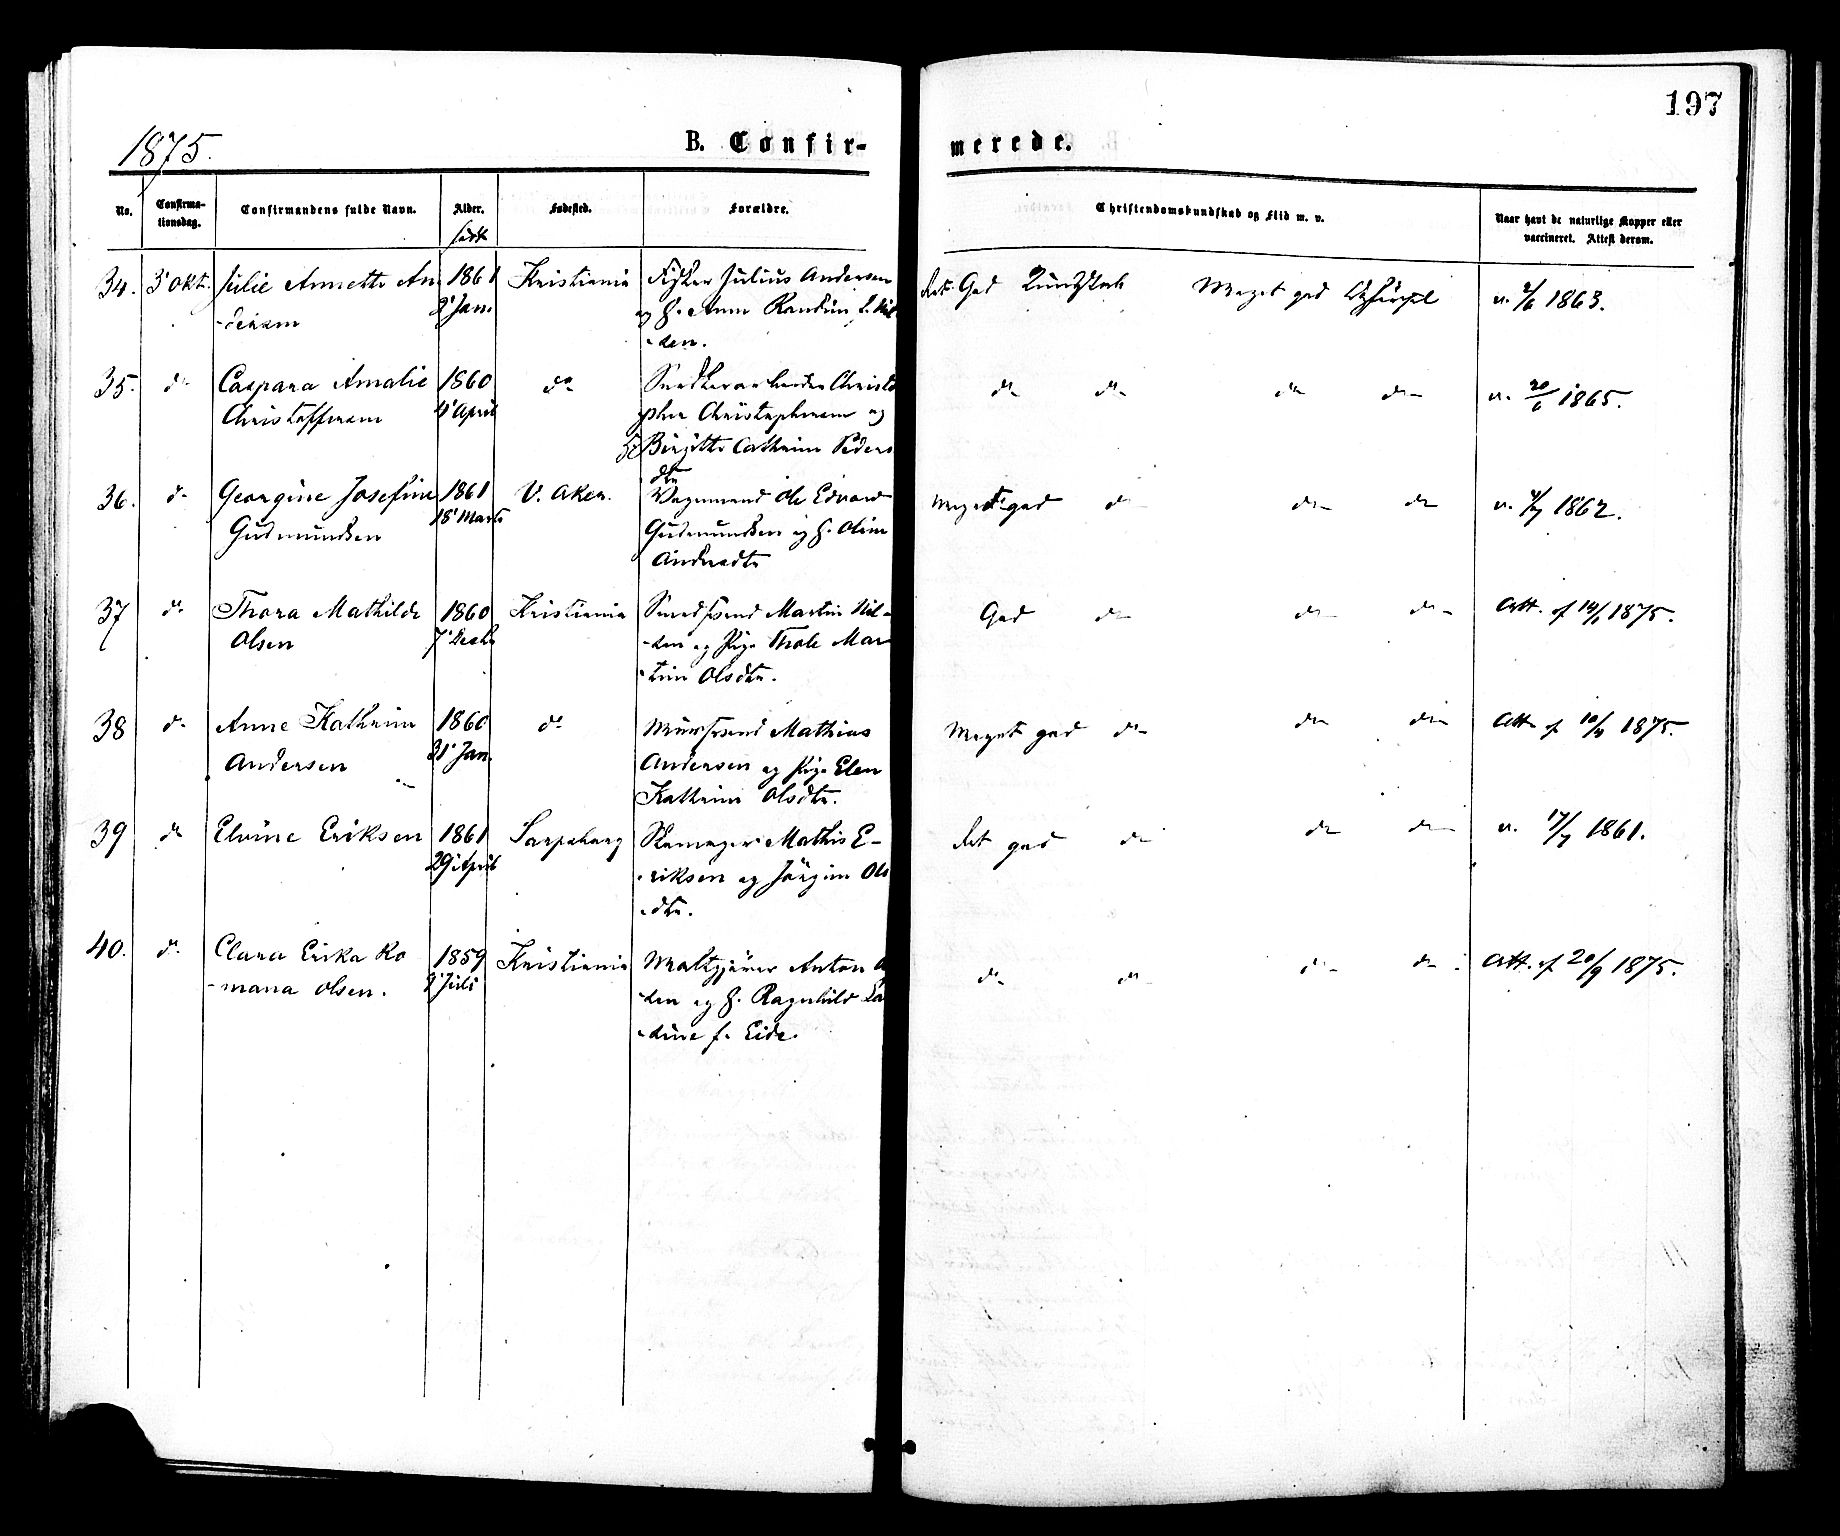 197
1875.
B. Confir-
merede.
No.
Confirma-
tionsdag.
Confirmandens fulde Navn.
Alder.
født
Fødested.
Forældre.
Christendomskundskab og Flid m. v.
Naar havt de naturlige Kopper eller
vaccineret. Attest derom.
34. 3' Okt. Julie Annette An 1861 Kristiania Fisker Julius Andersen Godt Kundskab Meget god v. 1863.
-dersen 2' Jan. og H. Anne
35. do Caspara Amalie 1860 do Christo do do do do v. 20/6 1865.
Christoffersen 4' April pher Christophersen og
Birgitte Cathrine Peders
dtr
36. do Georgine Josefine 1861 V. Aker. Vognmand Ole Edvard Meget god do do do v. 1862.
Gudmundsen 18' Marts Gudmundsen og H. Oline
Andersdtr
37 do Thora Mathilde 1860 Kristiania Smedsvend Martin Nil- God do do do Att. af 14/1 1875.
Olsen 7' Decbr -sen og Pige Thale Mar
tine Olsdtr.
38 do Anne Kathrine 1860 do Mursvend Mathias Meget god do do do Att. af 1875.
Andersen 31' Jan. Andersen og Pige Elen
Kathrine Olsdtr.
39 do Elvine Eriksen 1861 Sarpsborg Skomager Mathis E- god do do do v. 17/7 1861.
29' April -riksen og Jörgine Ols
-dtr.
40. do Clara Erika Ro 1859 Kristiania Anton do do do do Att. af 20/9 1875.
-mana Olsen. Juli -sen og H. Ragnhild
f. Eide.